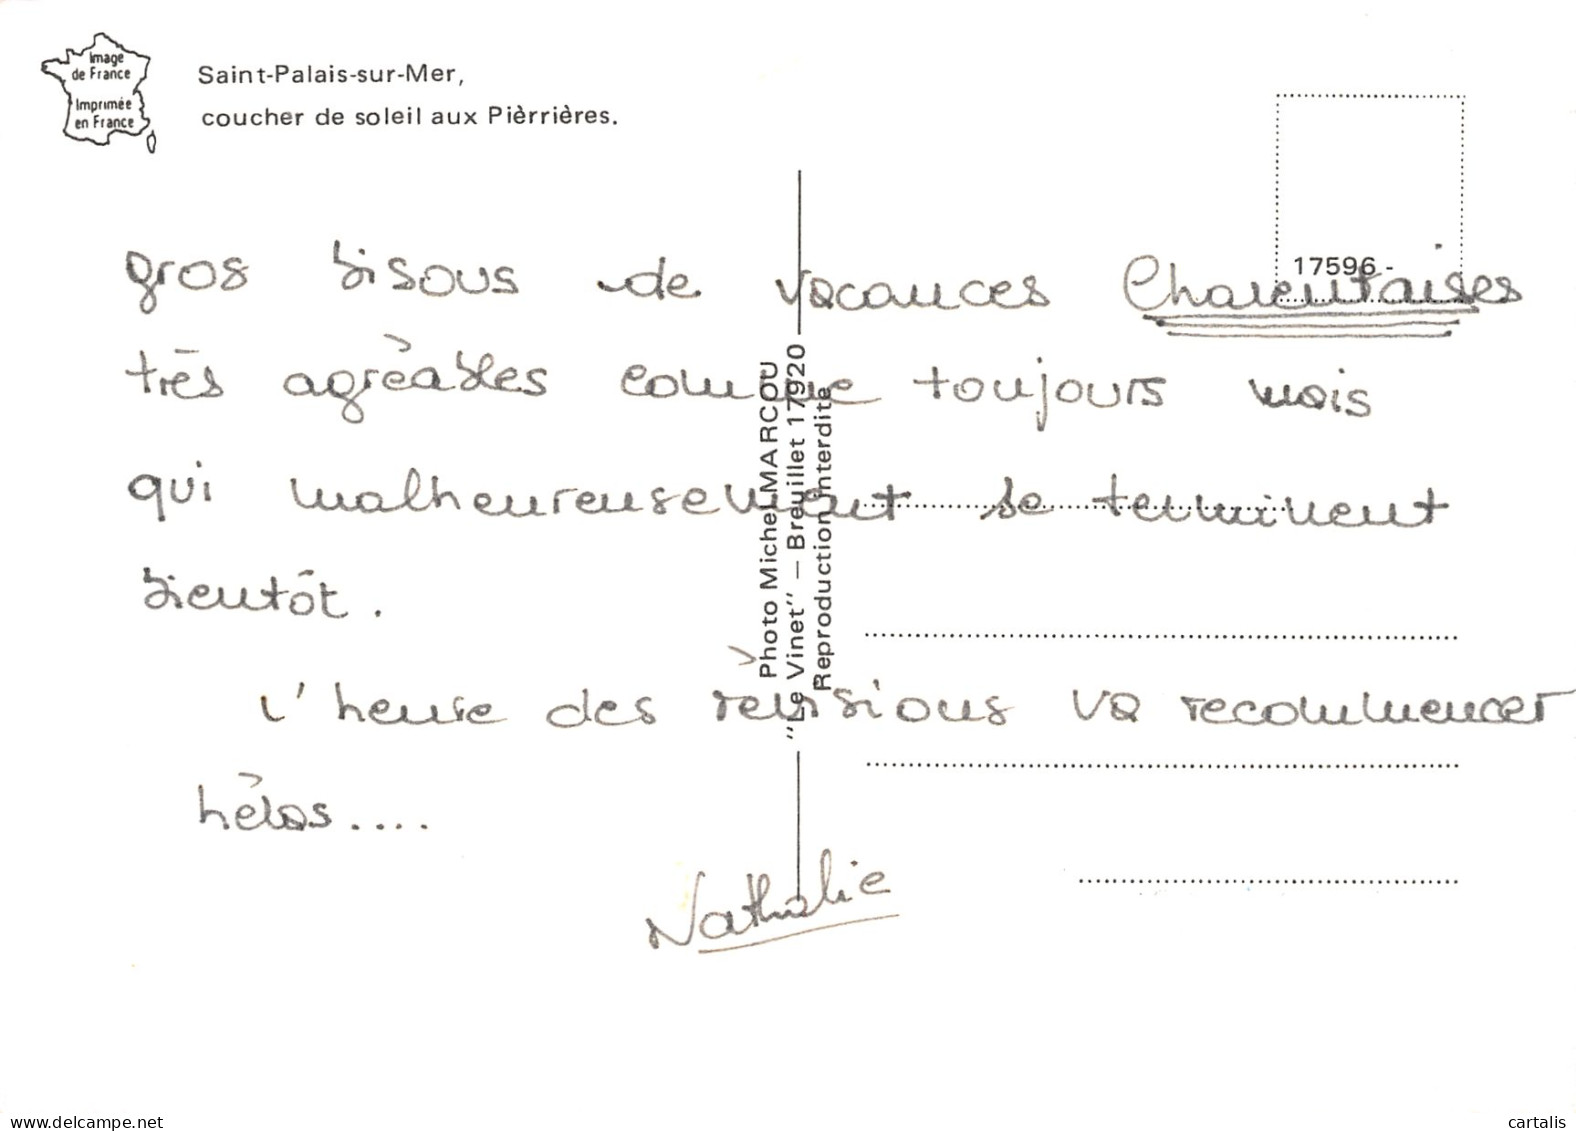 Image
de France
Imprimée
en France
Saint-Palais-sur-Mer,
coucher de soleil aux Pièrrières.
17596 -
gros bisous de vacances Charentaises
très agréables comme toujours mais
qui malheureusement se terminent
bientôt.
L'heure des révisions va recommencer
hélas....
Nathalie
Photo Michel MARCOU
"Le Vinet" — Breuillet 17920
Reproduction interdite
www.delcampe.net
cartalis